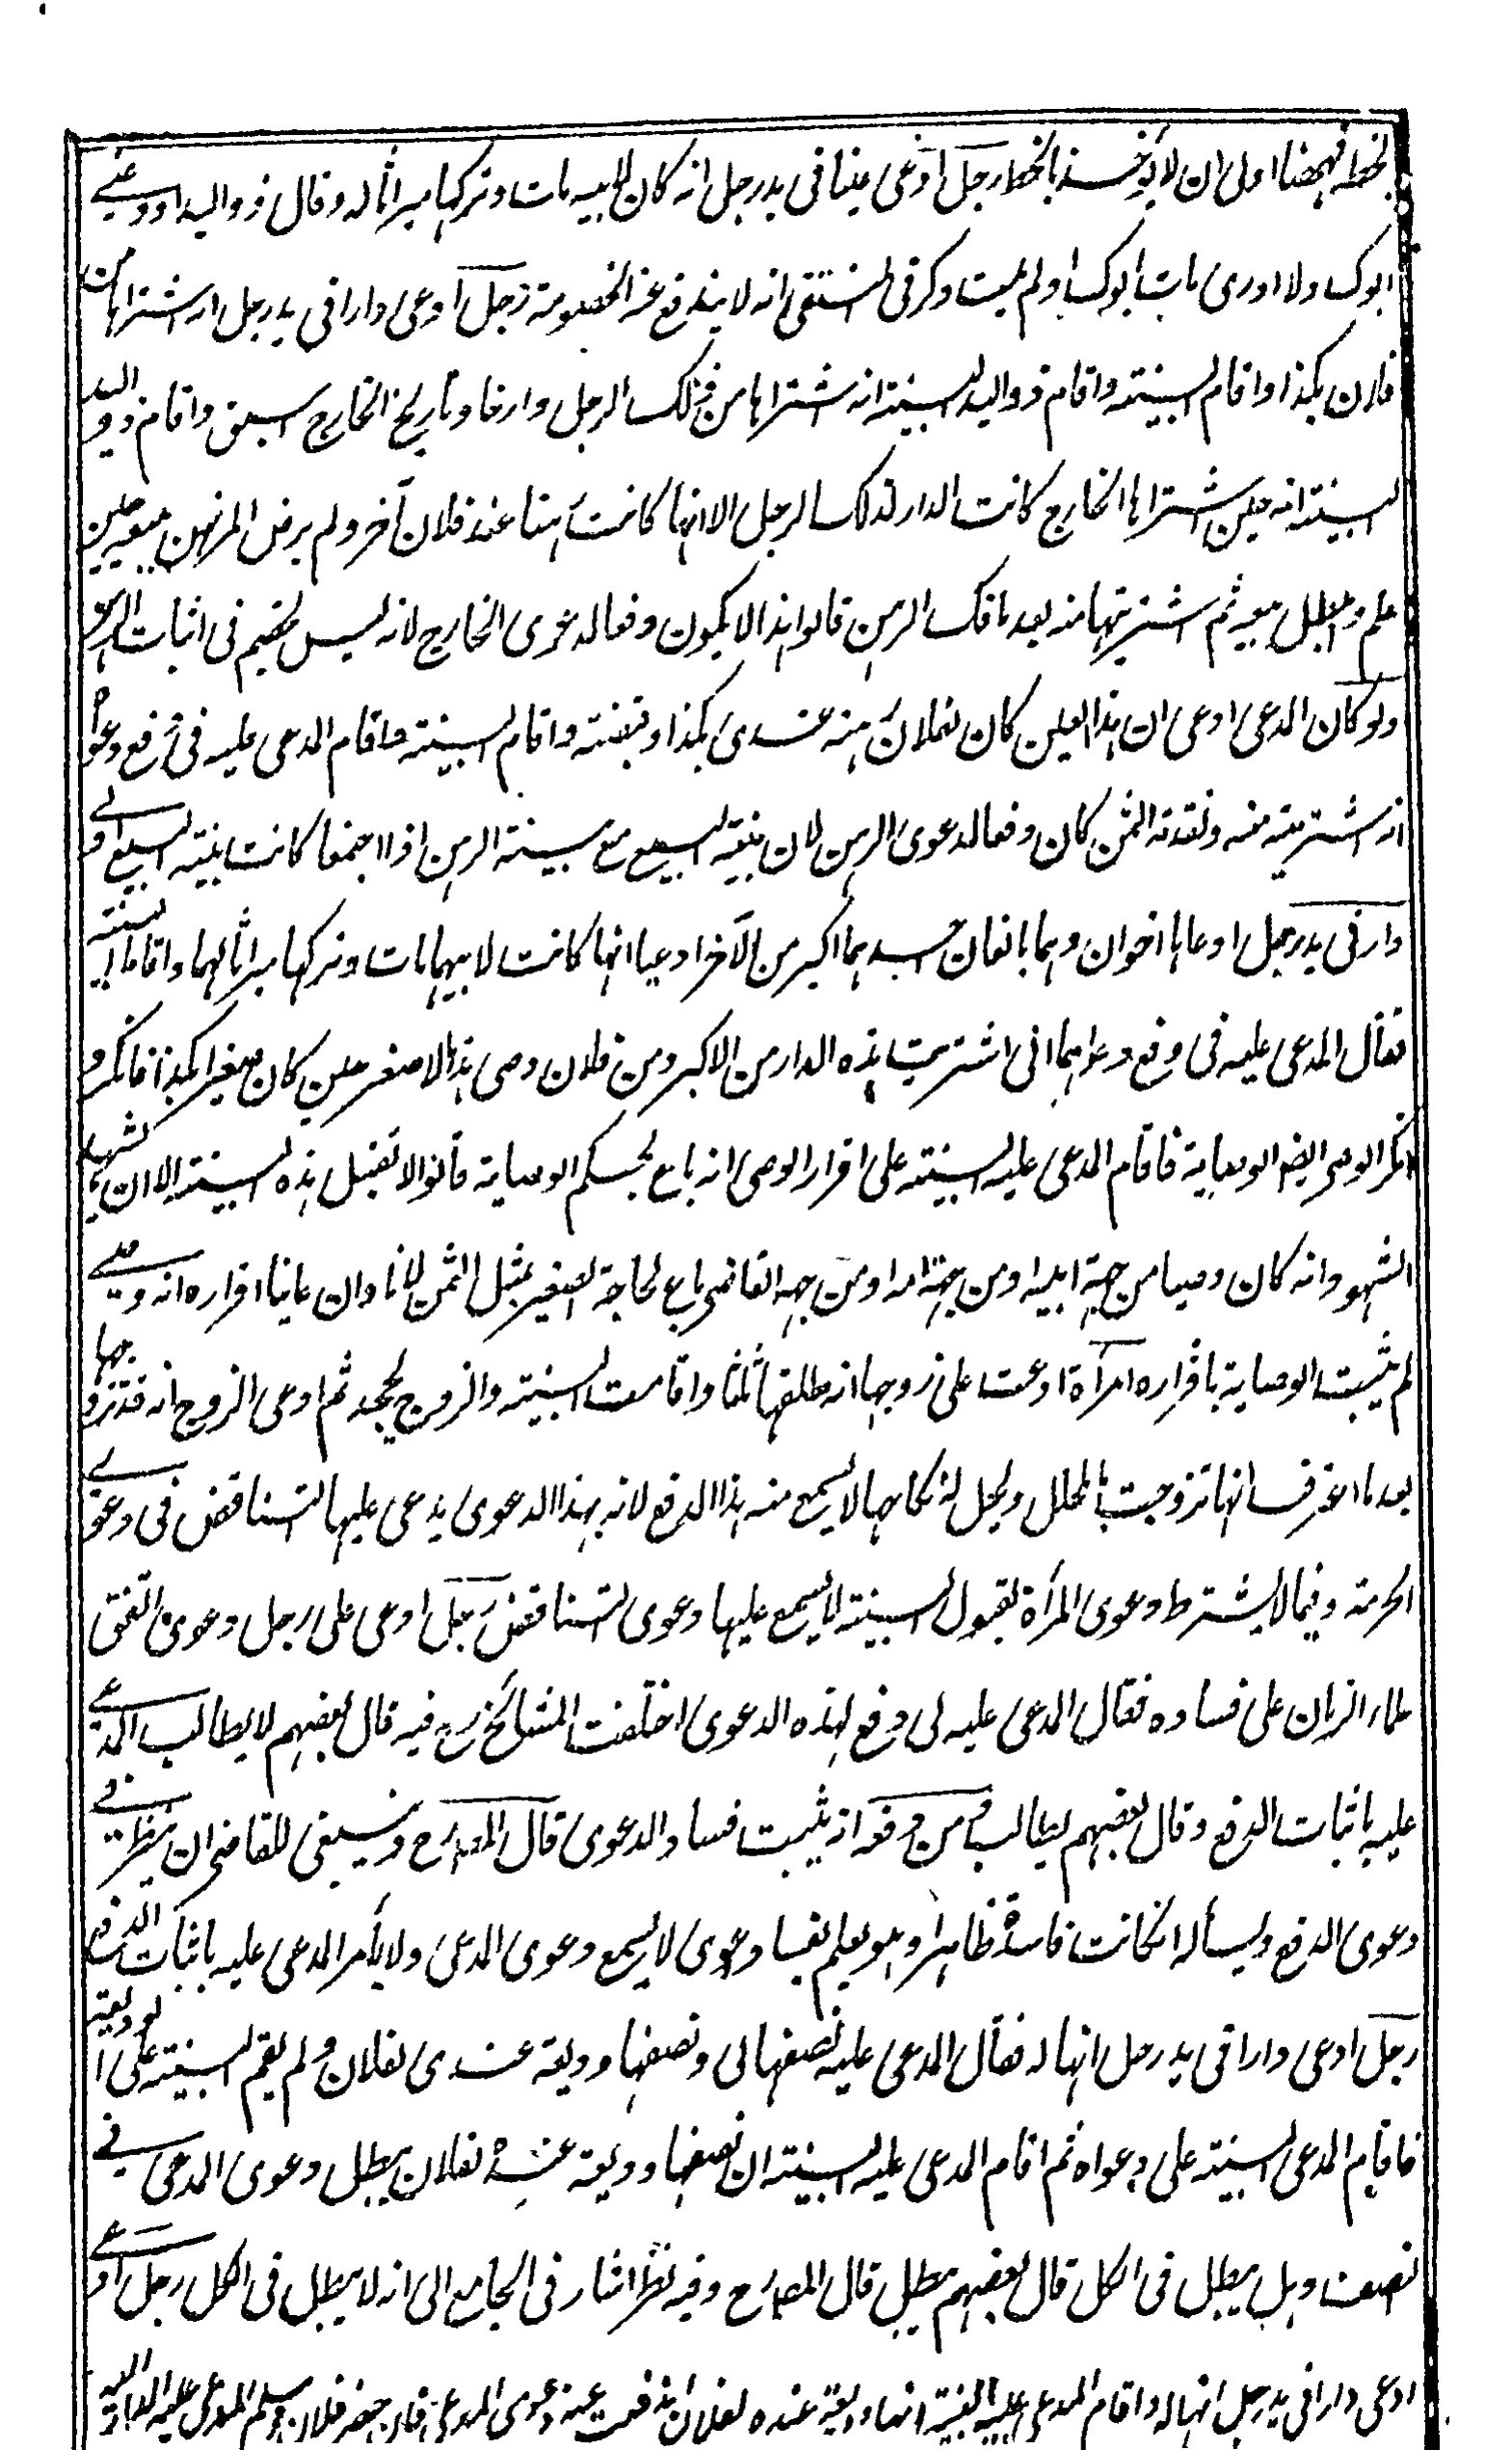 بخطه فههنا اولى ان لا يؤخذ بالخط رجل ادعى عينا فى يد رجل انه كان لابيه مات وتركها ميراثا له وقال ذو اليد اودعنى
ابوك ولا ادرى مات ابوك او لم يمت ذكر فى المنتقى انه لا يندفع عنه الخصومة رجل ادعى دارا فى يد رجل انه اشتراها من
فلان بكذا واقام البينة واقام ذو اليد البينة انه اشتراها من ذلك الرجل وارخا وتاريخ الخارج اسبق واقام ذو اليد
البينة انه حين اشتراها الخارج كانت الدار لذلك الرجل الا انها كانت رهنا عند فلان آخر ولم يرض المرتهن ببيعه حين
علم وابطل بيعه ثم اشتريتها منه بعد ما فك الرهن قالوا هذا لا يكون دفعا لدعوى الخارج لانه ليس بخصم فى اثبات الرهن
ولو كان المدعى ادعى ان هذا العين كان لفلان رهنه عندى بكذا وقبضته واقام البينة واقام المدعى عليه فى دفع دعواه
انه اشتريته منه ونقدته الثمن كان دفعا لدعوى الرهن لان بينة البيع مع بينة الرهن اذا اجتمعا كانت بينة البيع اولى
دار فى يد رجل ادعاها اخوان وهما بالغان احدهما اكبر من الآخر ادعيا انها كانت لابيهما مات وتركها ميراثا لهما واقاما البينة
فقال المدعى عليه فى دفع دعواهما انى اشتريت هذه الدار من الاكبر ومن فلان وصى هذا الاصغر حين كان صغيرا بكذا فانكر و
انكر الوصى ايضا الوصاية فاقام المدعى عليه البينة على اقرار الوصى انه باع بحكم الوصاية قالوا لا تقبل هذه البينة الا ان يشهد
الشهود انه كان وصيا من جهة ابيه او من جهة امه او من جهة القاضى باع لحاجة الصغير بمثل الثمن لانا وان عاينا اقراره انه وصى
لم يثبت الوصاية باقراره امرأة ادعت على زوجها انه طلقها ثلثا واقامت البينة والزوج يجحد ثم ادعى الزوج انه قد تزوجها
بعد ما اعترفت انها تزوجت بالمحلل ويحل له نكاحها لا يسمع منه هذا الدفع لانه بهذا الدعوى يدعى عليها التناقض فى دعوى
الحرمة وفيما لا يشترط دعوى المرأة لقبول البينة لا يسمع عليها دعوى التناقض رجل ادعى على رجل دعوى اتفق
علماء الزمان على فساده فقال المدعى عليه لى دفع لهذه الدعوى اختلفت المشائخ رح فيه قال بعضهم لا يطالب المدعى
عليه باثبات الدفع وقال بعضهم يطالب من دفعه انه يثبت فساد الدعوى قال المصنف رح وينبغى للقاضى ان ينظر فى
دعوى الدفع ويسأله ان كانت فاسدة ظاهرا وهو يعلم بفساد دعوى لا يسمع دعوى المدعى ولا يأمر المدعى عليه باثبات الدفع
رجل ادعى دارا فى يد رجل انها له فقال المدعى عليه نصفها لى ونصفها وديعة عندى لفلان ولم يقم البينة على الوديعة
فاقام المدعى البينة على دعواه ثم اقام المدعى عليه البينة ان نصفها وديعة عنده لفلان يبطل دعوى المدعى فى
النصف وهل يبطل فى الكل قال بعضهم يبطل قال المصنف رح وفيه نظر اشار فى الجامع الى انه لا يبطل فى الكل رجل ادعى
ادعى دارا فى يد رجل انها له واقام المدعى عليه البينة انها وديعة عنده لفلان اندفعت عنه دعوى المدعى فان حضر فلان وسلم المدعى عليه الدار اليه